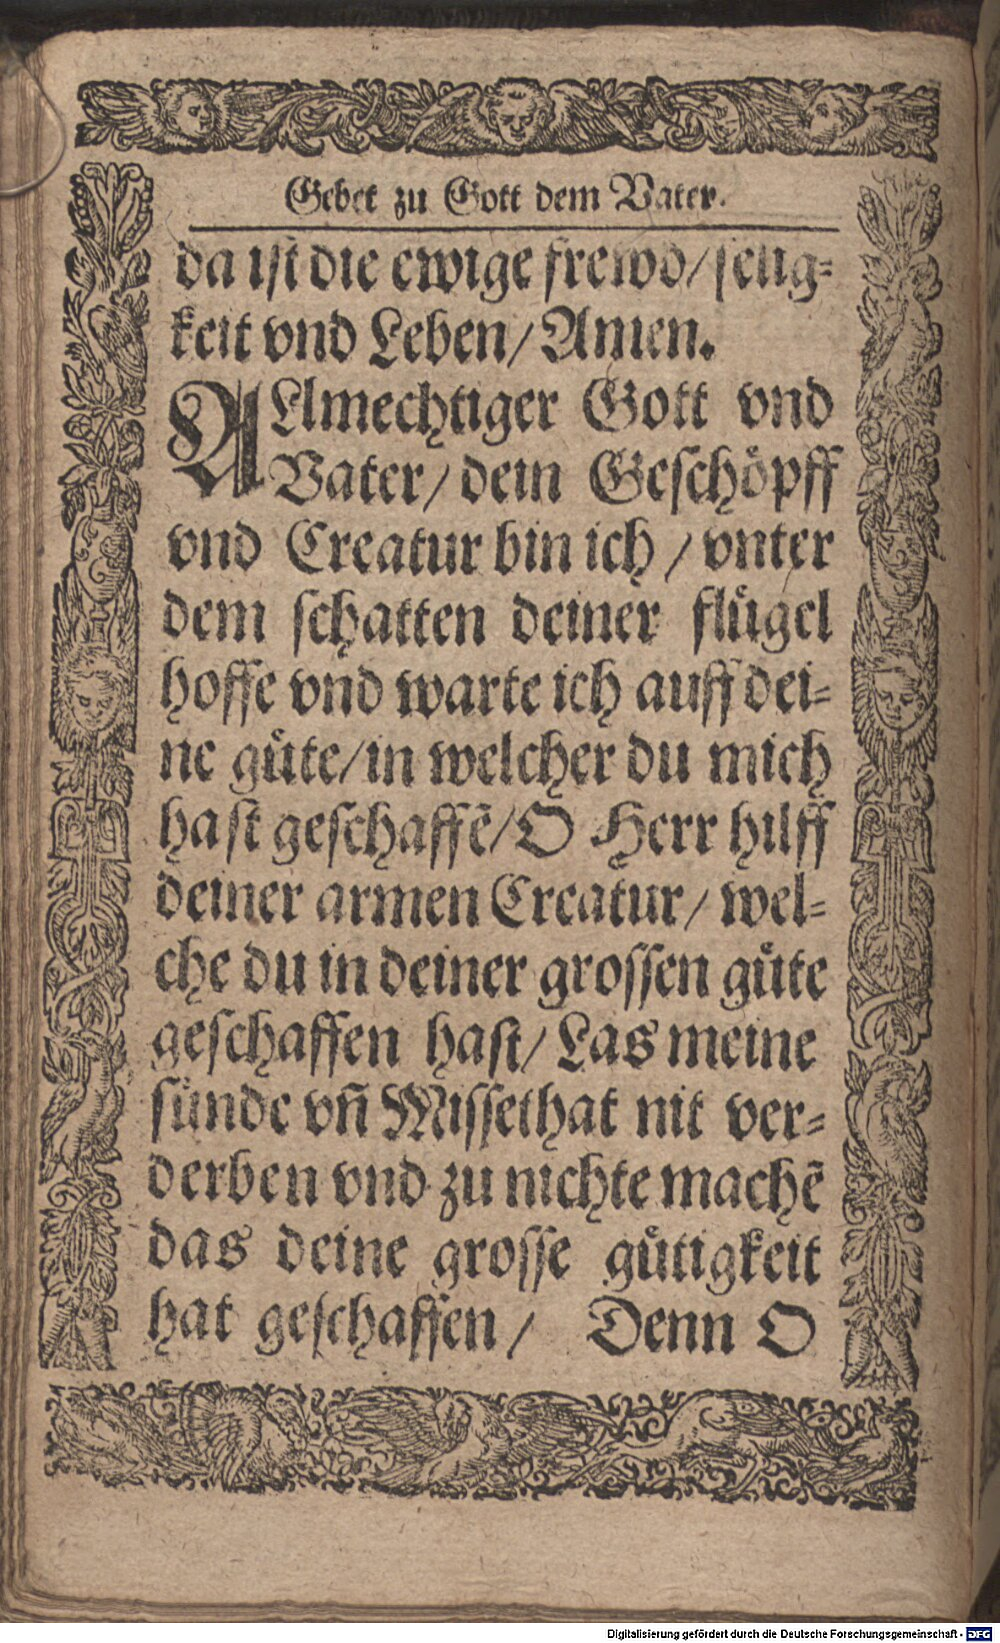 Gebet zu Gott dem Vater.
da ist die ewige frewd/ selig⸗
keit vnd Leben/ Amen.
ALlmechtiger Gott vnd
Vater/ dein Geschöpff
vnd Creatur bin ich / vnter
dem schatten deiner flügel
hoffe vnd warte ich auff dei⸗
ne güte/ in welcher du mich
hast geschaffē/ O Herr hilff
deiner armen Creatur/ wel⸗
che du in deiner grossen güte
geschaffen hast/ Las meine
sünde vñ Missethat nit ver⸗
derben vnd zu nichte machē
das deine grosse gütigkeit
hat geschaffen / Denn O
Digitalisierung gefördert durch die Deutsche Forschungsgemeinschaft - DFG